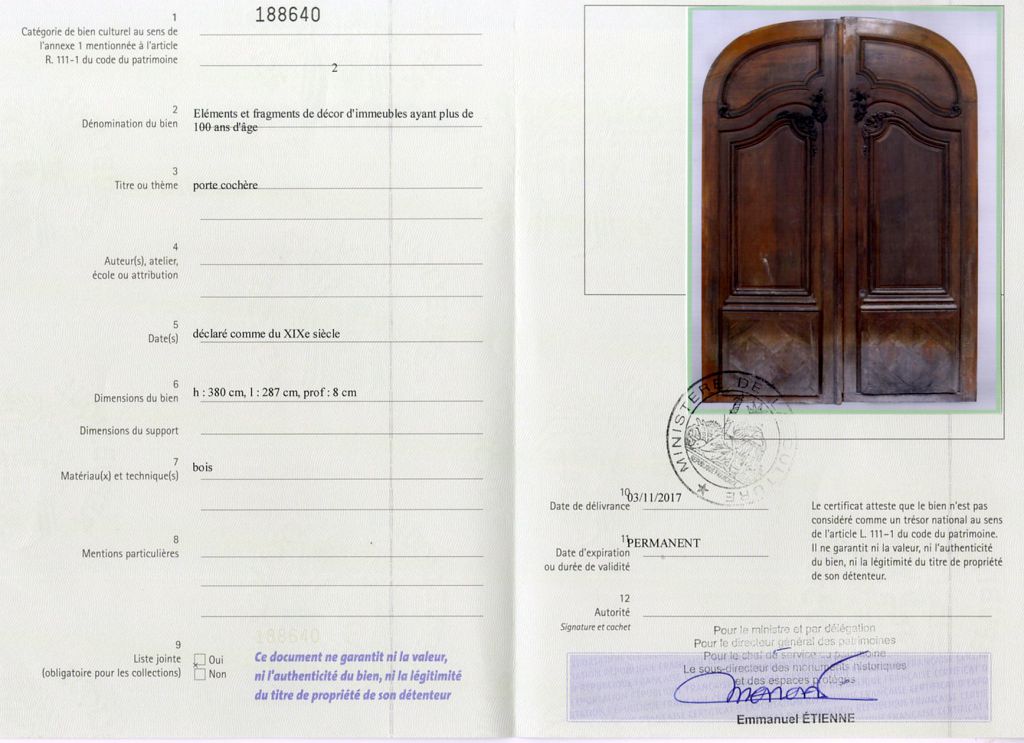 188640
1
Catégorie de bien culturel au sens de
l'annexe 1 mentionnée à l'article
R. 111-1 du code du patrimoine
2
2
Dénomination du bien
Eléments et fragments de décor d'immeubles ayant plus de
100 ans d'âge
3
Titre ou thème
porte cochère
4
Auteur(s), atelier,
école ou attribution
5
Date(s)
déclaré comme du XIXe siècle
6
Dimensions du bien
h : 380 cm, l : 287 cm, prof : 8 cm
Dimensions du support
7
Matériau(x) et technique(s)
bois
8
Mentions particulières
9
Liste jointe
(obligatoire pour les collections)
Oui
Non
188640
Ce document ne garantit ni la valeur,
ni l'authenticité du bien, ni la légitimité
du titre de propriété de son détenteur
MINISTERE DE L CULTURE
10
Date de délivrance
03/11/2017
11
Date d'expiration
ou durée de validité
PERMANENT
Le certificat atteste que le bien n'est pas
considéré comme un trésor national au sens
de l'article L. 111-1 du code du patrimoine.
Il ne garantit ni la valeur, ni l'authenticité
du bien, ni la légitimité du titre de propriété
de son détenteur.
12
Autorité
Signature et cachet
Pour le ministre et par délégation
Pour le directeur général des patrimoines
Pour le chef de service du patrimoine
Le sous-directeur des monuments historiques
et des espaces protégés
Emmanuel ÉTIENNE